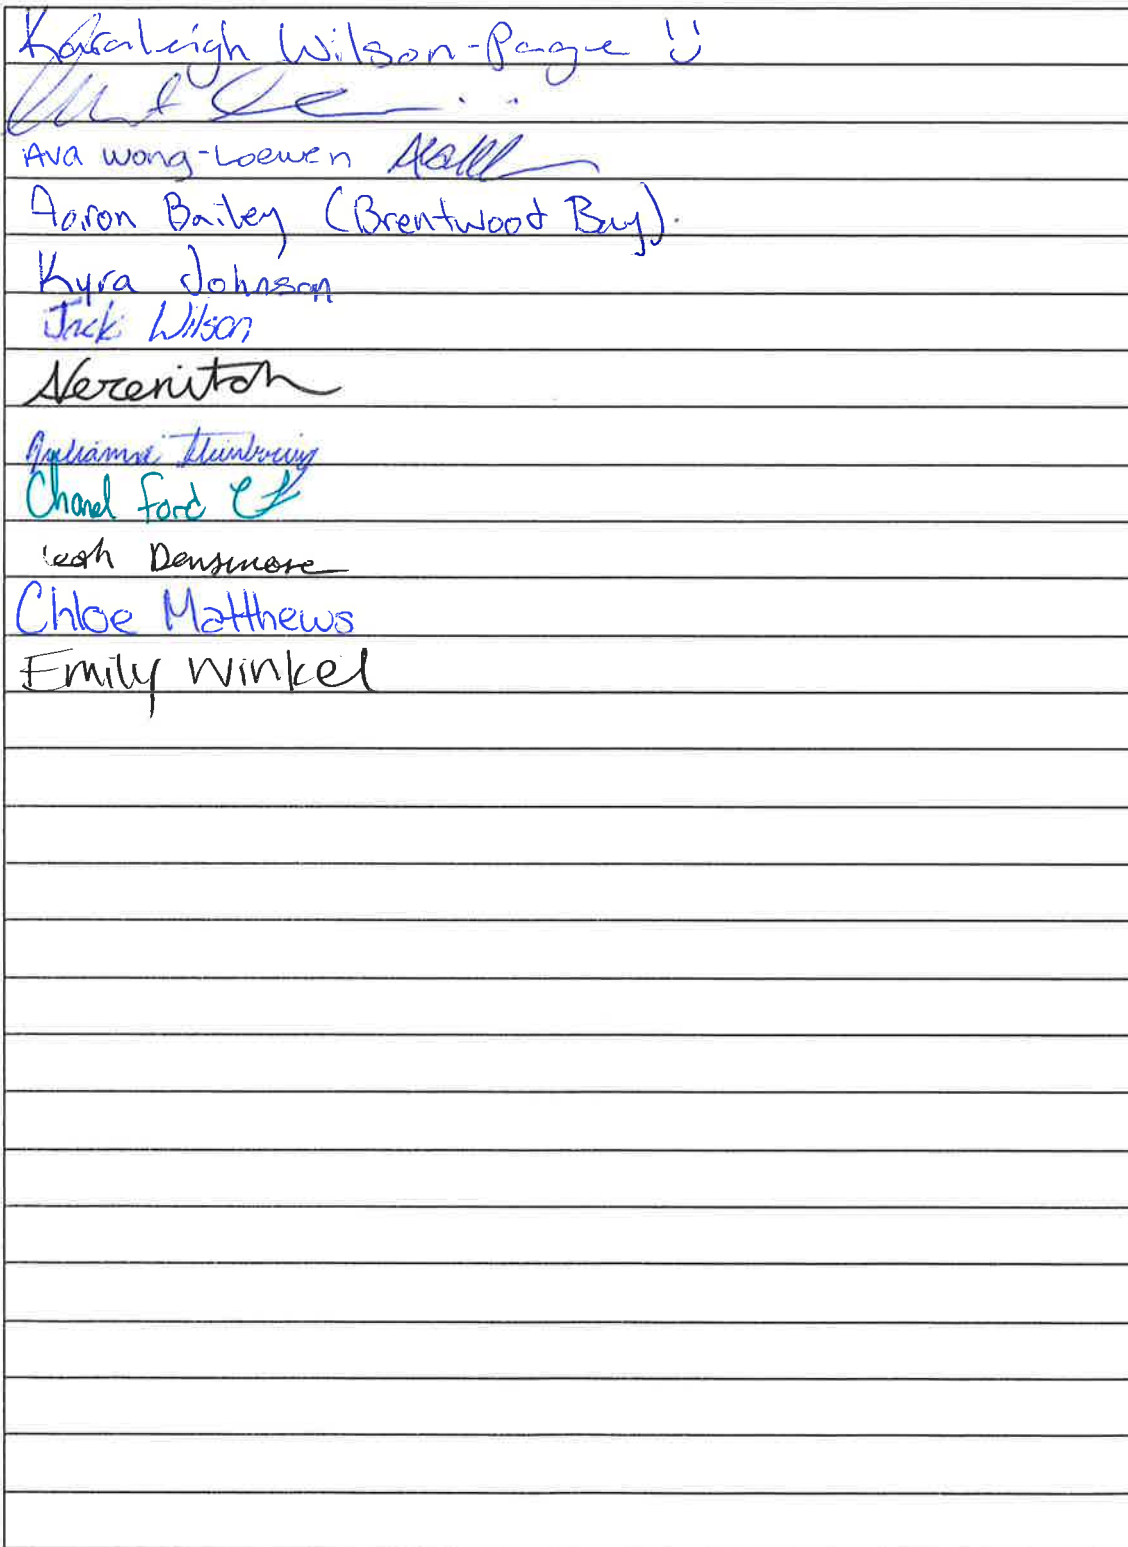 Karaleigh Wilson-Paage
Ava wong-Loewen
Aaron Bailey (Brentwood Bay).
Kyra Johnson
Jack Wilson
Chanel Ford CF
Leah Densmore
Chloe Matthews
Emily Winkel